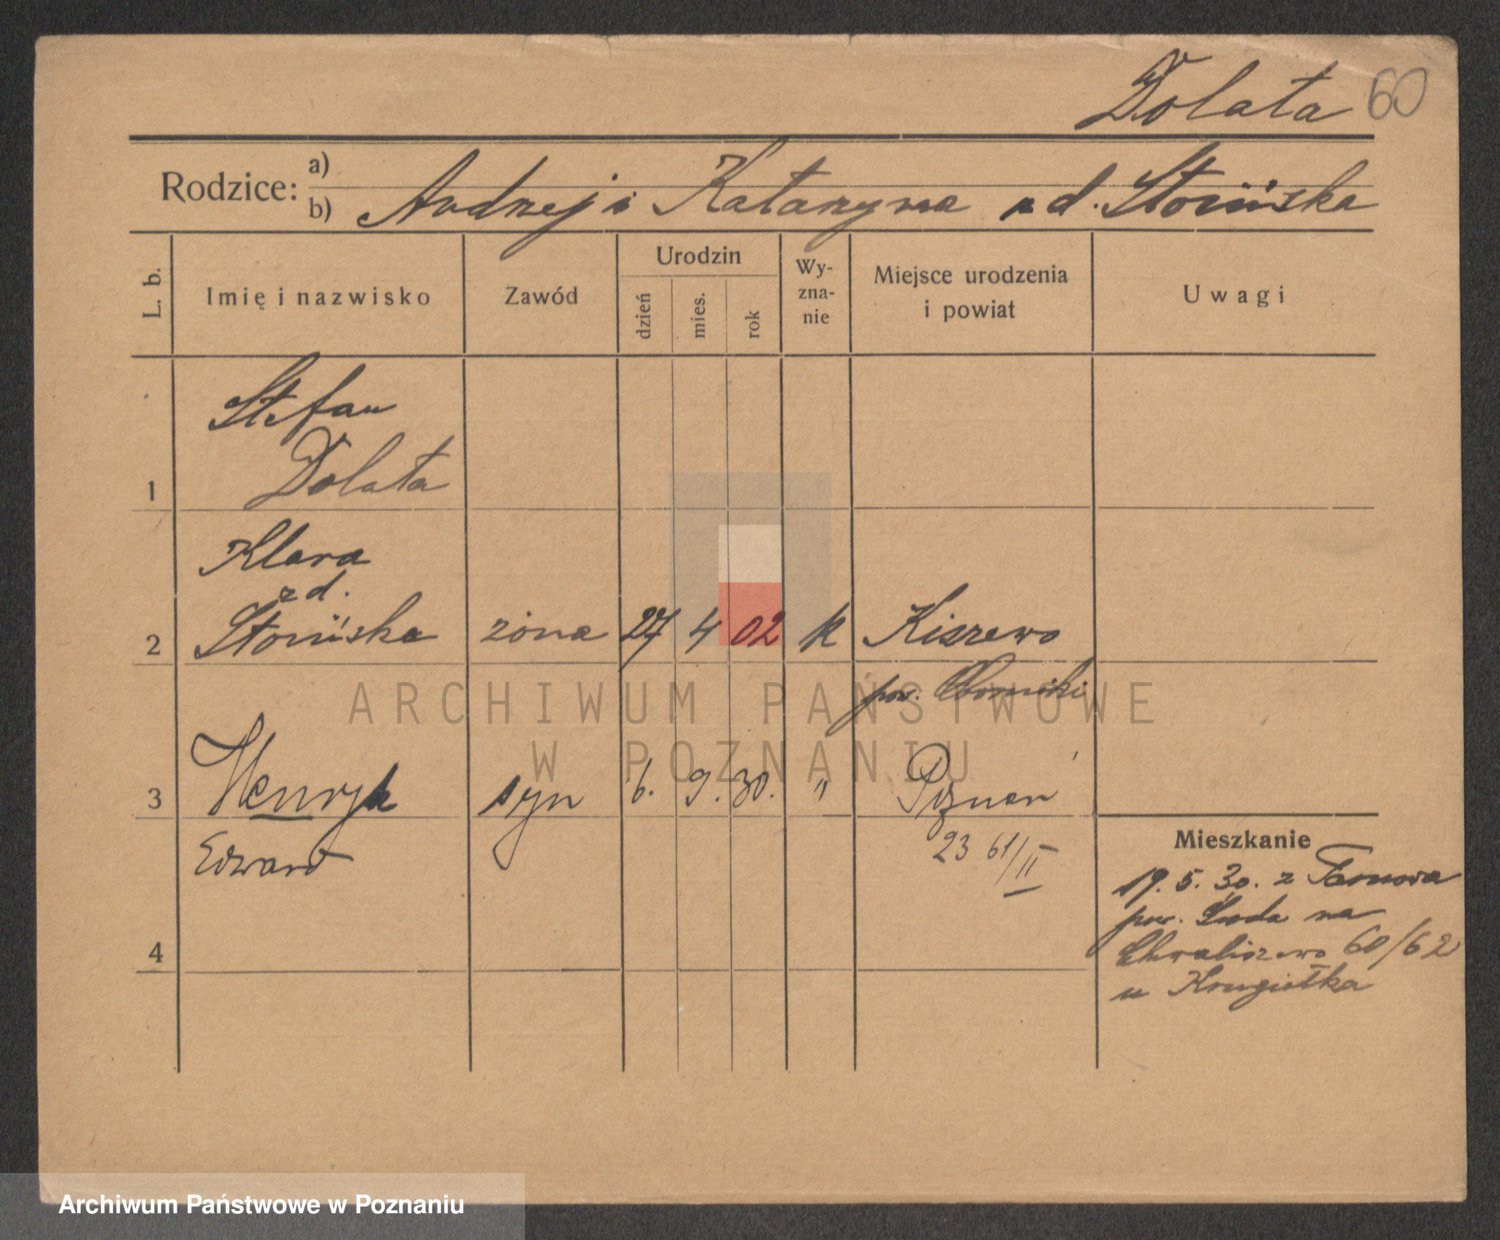 Dolata 60
Rodzice: a)
b) Andrzej i Katarzyna z d. Stoińska
L. b.
Imię i nazwisko
Zawód
Urodzin
dzień
mies.
rok
Wy-
zna-
nie
Miejsce urodzenia
i powiat
Uwagi
Stefan
1 Dolata
Klara
z d.
2 Stoińska żona 27 4 02 k Kiszewo
pow. Oborniki
3 Henryk syn 6. 9. 30. " Poznań
Edward
23 61/II
4
Mieszkanie
19. 5. 30. z Tarnowa
pow. Środa na
Chwaliszewo 60/62
u
ARCHIWUM PAŃSTWOWE
W POZNANIU
Archiwum Państwowe w Poznaniu